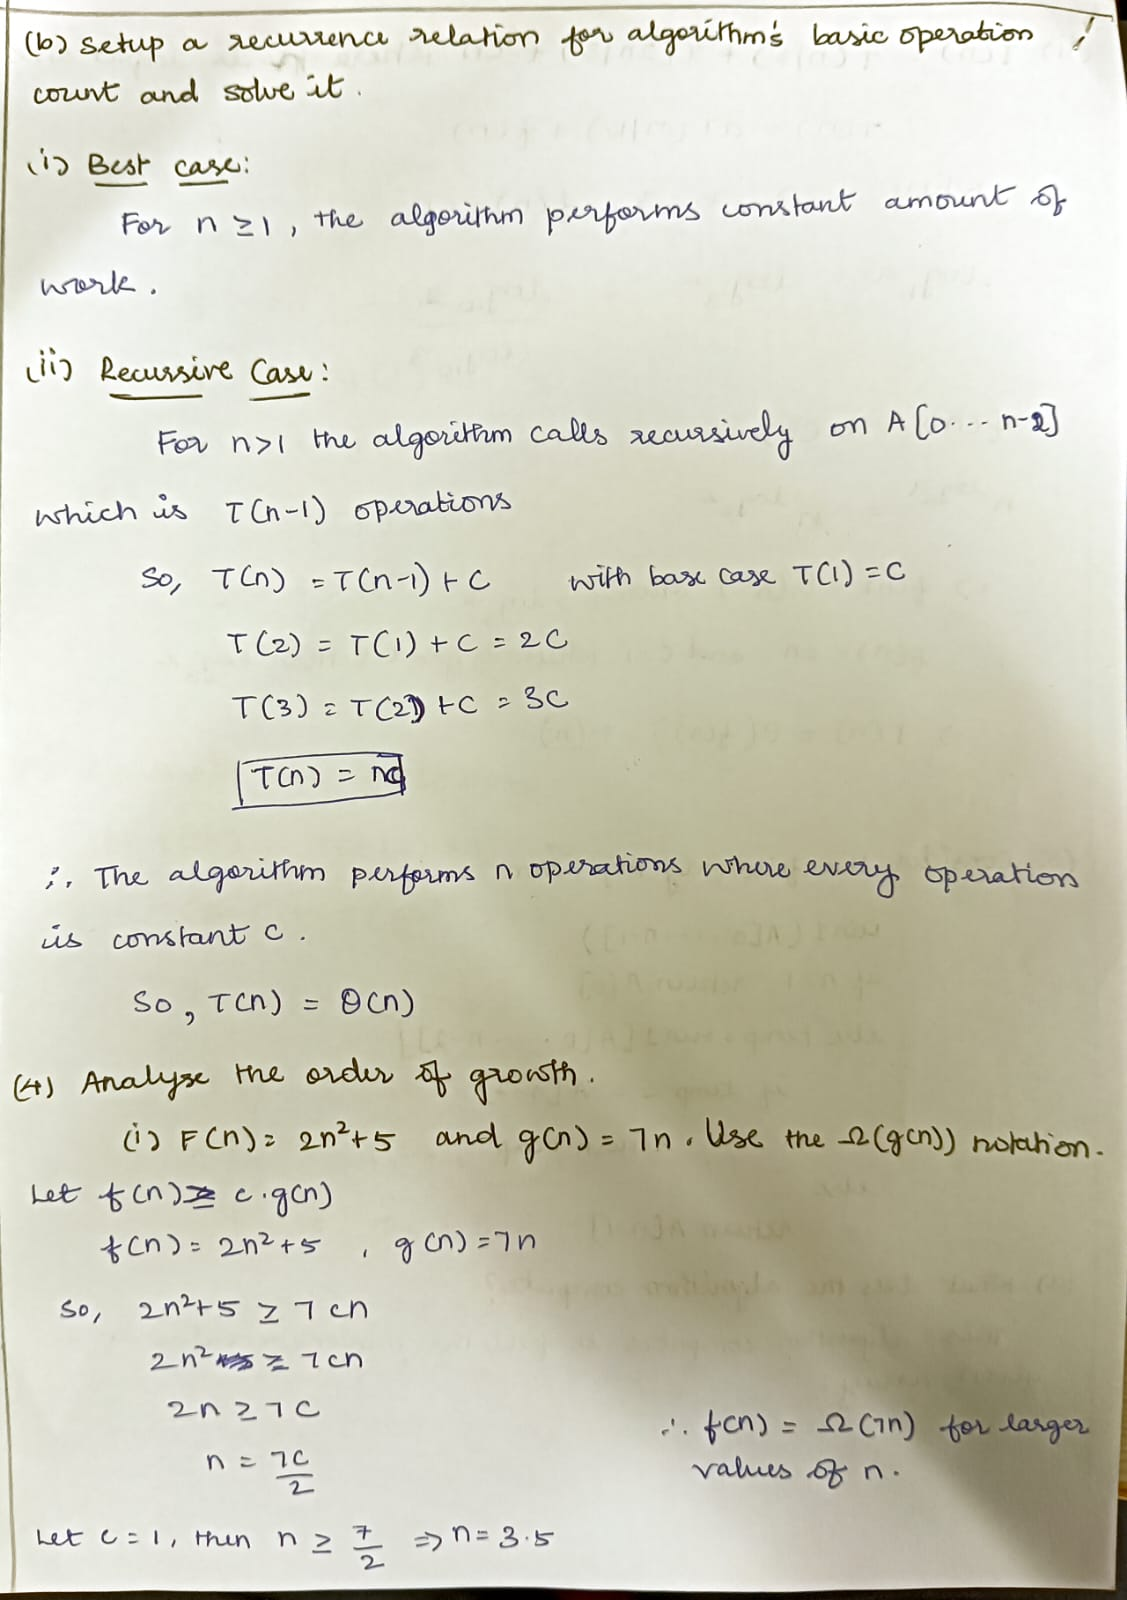 (b) Setup a recurrence relation for algorithm's basic operation
count and solve it.
(i) Best case:
For n ≥ 1, the algorithm performs constant amount of
work.
(ii) Recursive Case:
For n>1 the algorithm calls recursively on A[0... n-2]
which is T(n-1) operations
So, T(n) = T(n-1) + C with base case T(1) = C
T(2) = T(1) + C = 2C
T(3) = T(2) + C = 3C
T(n) = nc
∴ The algorithm performs n operations where every operation
is constant c.
So, T(n) = θ(n)
(4) Analyse the order of growth.
(i) F(n) = 2n²+5 and g(n) = 7n. Use the Ω(g(n)) notation.
Let f(n) ≥ c.g(n)
f(n) = 2n²+5 , g(n) = 7n
So, 2n²+5 ≥ 7cn
2n² ≥ 7cn
2n ≥ 7C
n = 7C/2
∴ f(n) = Ω(7n) for larger
values of n.
Let c = 1, then n ≥ 7/2 ⇒ n = 3.5